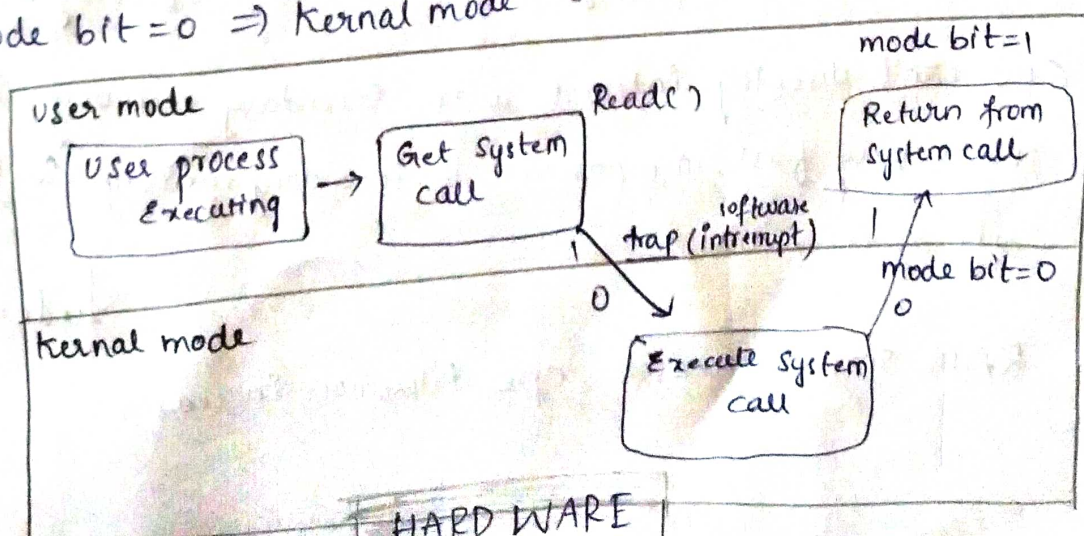 de bit = 0 ⇒ Kernal mode
mode bit=1
User mode
Read()
User process
Executing
Get System
call
Return from
System call
software
trap (intrempt)
1
1
0
mode bit=0
0
Kernal mode
Execute System
call
HARD WARE